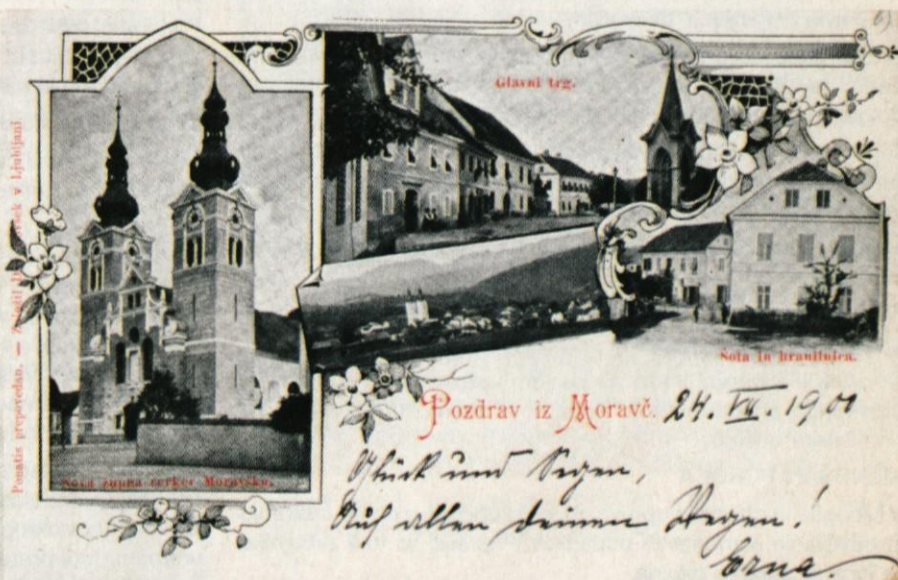 Ponatis prepovedan. — v Ljubljani
Glavni trg.
Šola in hranilnica.
Nova župna cerkev Moravska.
Pozdrav iz Moravč. 24. VII. 1900
Glück und Segen,
Auf allen deinen Wegen!
Erna.